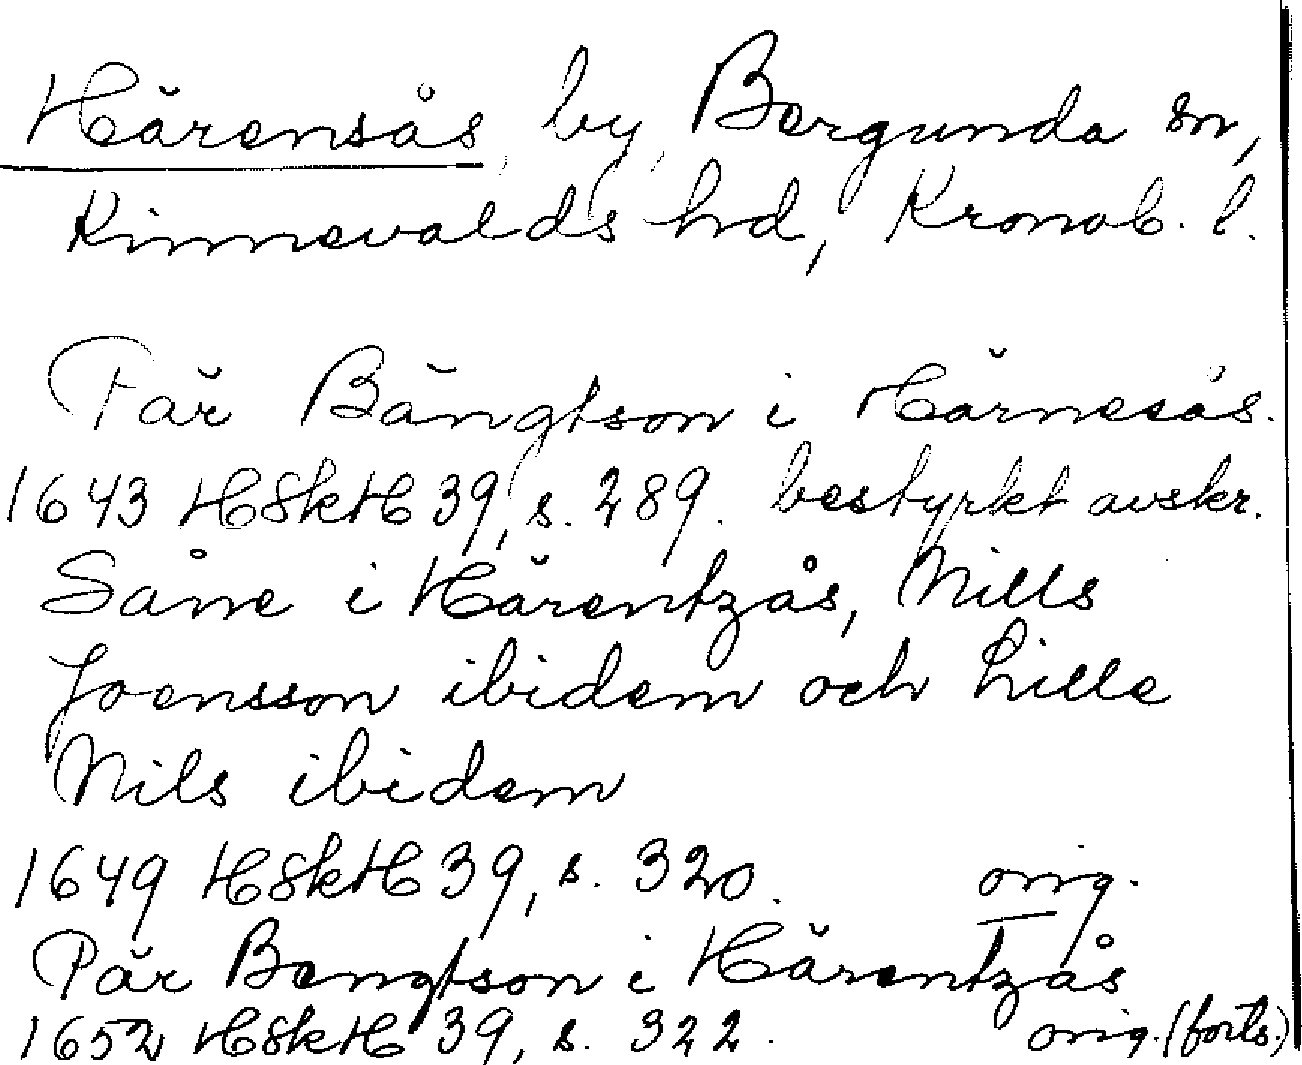 Härensås, by, Bergunda sn,
Kinnevalds hd, Kronob. l.
Pär Bängtson i Härnesås.
1643 HSkH 39, s. 289. bestyrkt avskr.
Såne i Härentzås, Nills
Joensson ibidem och Lille
Nils ibidem
1649 HSkH 39, s. 320. orig.
Pär Bengtson i Härentzås
1652 HSkH 39, s. 322. orig. (forts.)